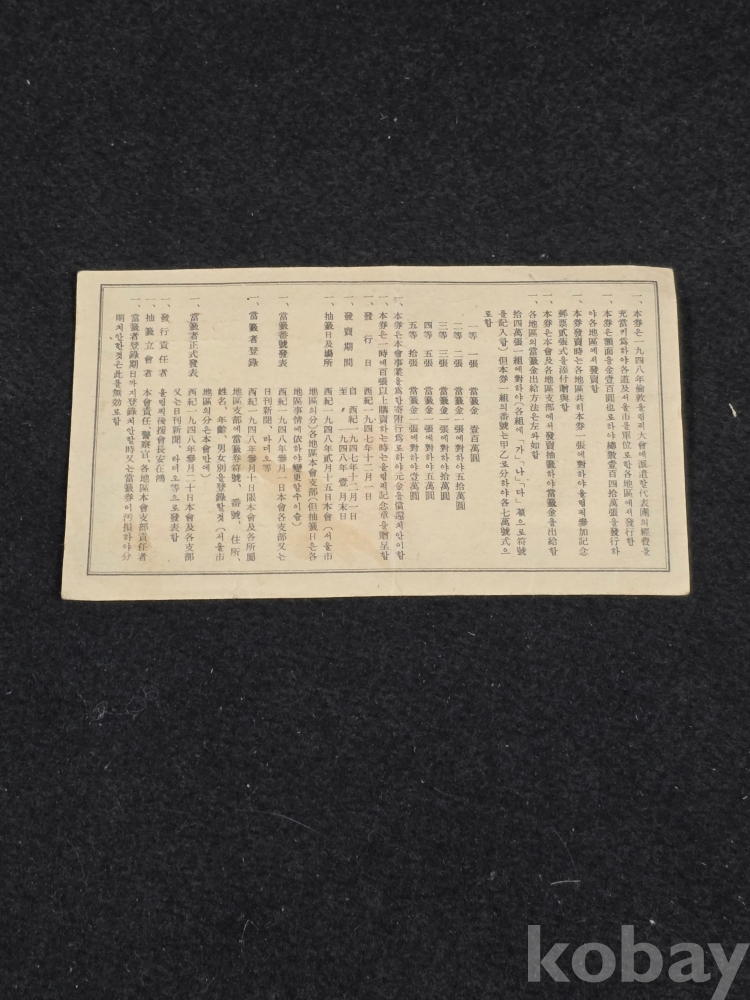 一、本券은一九四八年倫敦올림픽大會에派遣할代表團의經費를
充當키爲하야各道及서울市를單位로한各地區에서發行함
一、本券은額面을金壹百圓也로하야總數壹百四拾萬張을發行하
야各地區에서發賣함
一、本券發賣時는各地區共히本券一張에對하야올림픽參加記念
郵票貳張式을添付贈與함
一、本券은本會及各地區支部에서發賣抽籤하야當籤金을出給함
一、各地區의當籤金出給方法은左와如함
拾四萬張一組에對하야(各組에「가」「나」「다」順으로符號
를記入함)但本券一組의番號는甲乙로分하야各七萬號式으
로함
一等 一張 當籤金 壹百萬圓
二等 二張 當籤金一張에對하야五拾萬圓
三等 三張 當籤金一張에對하야拾萬圓
四等 五張 當籤金一張에對하야五萬圓
五等 拾張 當籤金一張에對하야壹萬圓
一、本券은本會事業을爲한寄附行爲로하야元金을償還치안이함
一、本券은一時에百張以上購買하는時는올림픽記念章을贈呈함
一、發行日 西紀一九四七年十二月一日
一、發賣期間 自 西紀一九四七年十二月一日
至 〃 一九四八年 壹月末日
一、抽籤日及場所 西紀一九四八年貳月十五日本會(서울市
地區의分)各地區本會支部(但抽籤日은各
地區事情에依하야變更할수이슴)
一、當籤番號發表 西紀一九四八年參月一日本會各支部又는
日刊新聞、라디오等
一、當籤者登錄 西紀一九四八年參月十日限本會及各所屬
地區支部에當籤券符號、番號、住所、
姓名、年齡、男女別을登錄할것(서울市
地區의分은本會만에)
一、當籤者正式發表 西紀一九四八年參月二十日本會及各支部
又는日刊新聞、라디오等으로發表함
一、發行責任者 올림픽後援會長安在鴻
一、抽籤立會者 本會責任、警察官、各地區本會支部責任者
一、當籤者登錄期日까지登錄치안한時又는當籤券이汚損하야分
明치안한것은此를無効로함
kobay